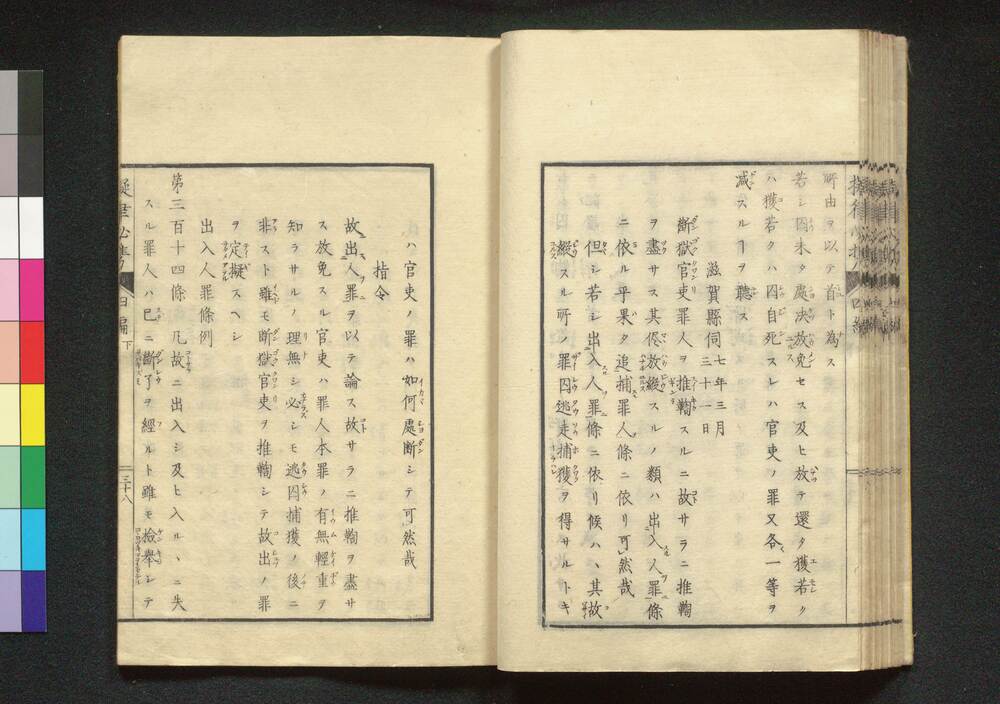 所由ヲ以テ首ト為ス
若シ囚未タ處决放免セス及ヒ放テ還タ獲若ク
ハ獲若クハ囚自死スレハ官吏ノ罪又各一等ヲ
减スルヿヲ聽ス
滋賀縣伺 七年三月三十一日
斷獄官吏罪人ヲ推鞫スルニ故サラニ推鞫
ヲ盡サス其侭放縱スルノ類ハ出入人罪條
ニ依ル乎果タ追捕罪人條ニ依リ可然哉
但シ若シ出入人罪條ニ依リ候ハヽ其故
縱スル所ノ罪囚逃走捕獲ヲ得サルトキ
ハ官吏ノ罪ハ如何處断シテ可然哉
指令
故出人罪ヲ以テ論ス故サラニ推鞫ヲ盡サ
ス放免スル官吏ハ罪人本罪ノ有無輕重ヲ
知ラサルノ理無シ必シモ逃囚捕獲ノ後ニ
非スト雖モ断獄官吏ヲ推鞫シテ故出ノ罪
ヲ定擬スヘシ
出入人罪條例
第三百十四條 凡故ニ出入シ及ヒ入ルヽニ失
スル罪人ハ已ニ斷了ヲ經ルト雖モ撿舉シテ
四編下
三十八